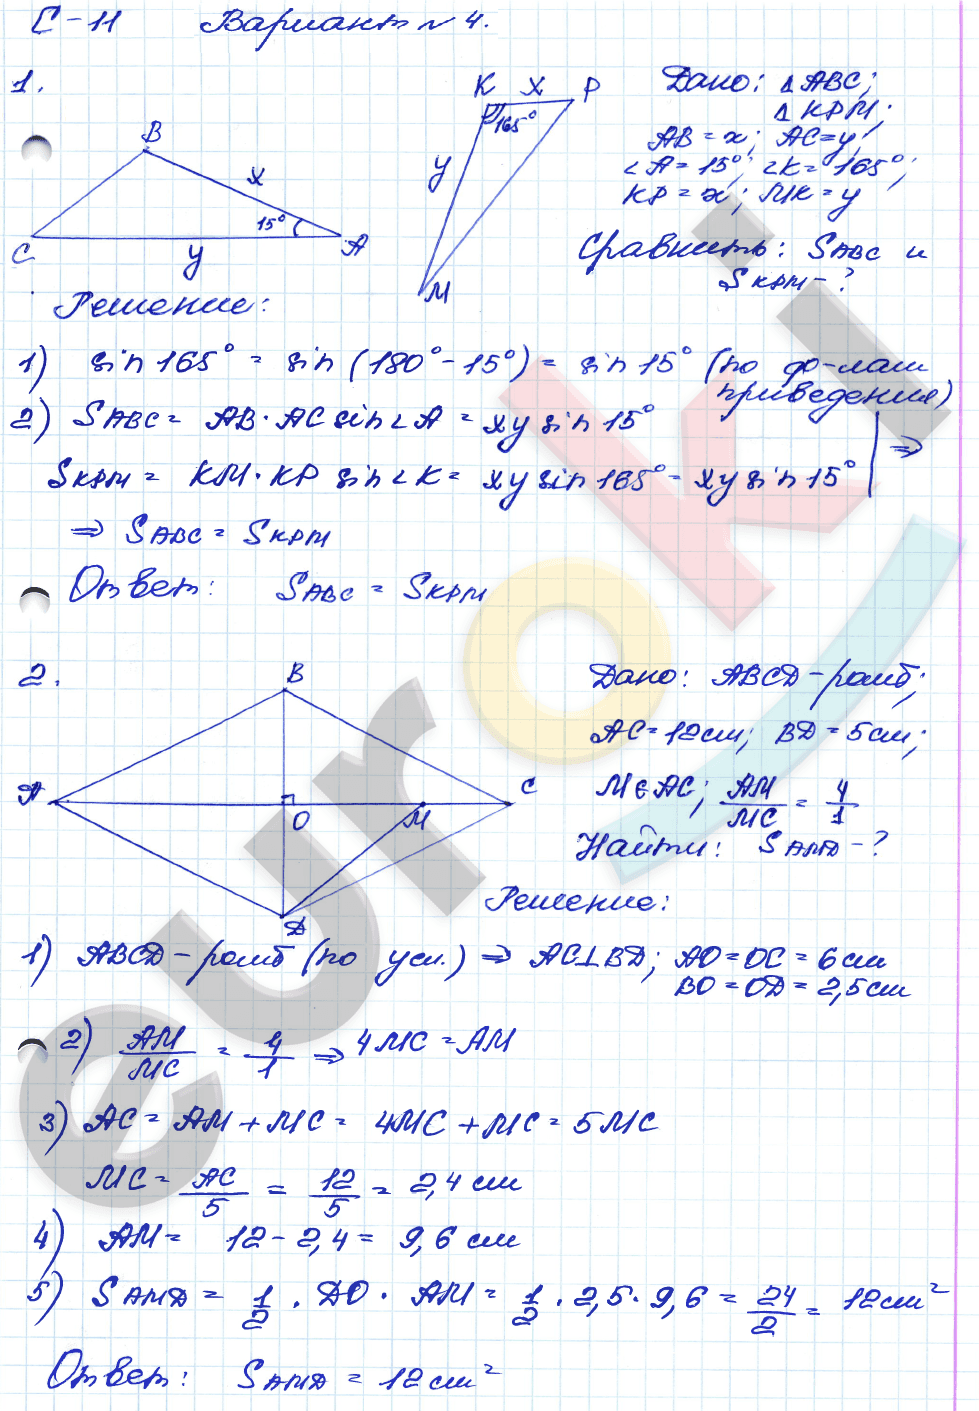 С-11 Вариант № 4.
1.
B
X
15°
C
y
A
K X P
165°
y
M
Дано: △ABC;
△KPM;
AB = x; AC = y;
∠A = 15°; ∠K = 165°;
KP = x; MK = y
Сравнить: SABC и
SKPM - ?
Решение:
1) sin 165° = sin (180° - 15°) = sin 15° (по ф-лам
приведения)
2) SABC = AB · AC sin ∠A = xy sin 15°
SKPM = KM · KP sin ∠K = xy sin 165° = xy sin 15° ⇒
⇒ SABC = SKPM
Ответ: SABC = SKPM
2.
B
A
O
M
C
D
Дано: ABCD - ромб;
AC = 12 см; BD = 5 см;
M ∈ AC; AM/MC = 4/1
Найти: SAMD - ?
Решение:
1) ABCD - ромб (по усл.) ⇒ AC⊥BD; AO = OC = 6 см
BO = OD = 2,5 см
2) AM/MC = 4/1 ⇒ 4MC = AM
3) AC = AM + MC = 4MC + MC = 5MC
MC = AC/5 = 12/5 = 2,4 см
4) AM = 12 - 2,4 = 9,6 см
5) SAMD = 1/2 · DO · AM = 1/2 · 2,5 · 9,6 = 24/2 = 12 см²
Ответ: SAMD = 12 см²
euroki